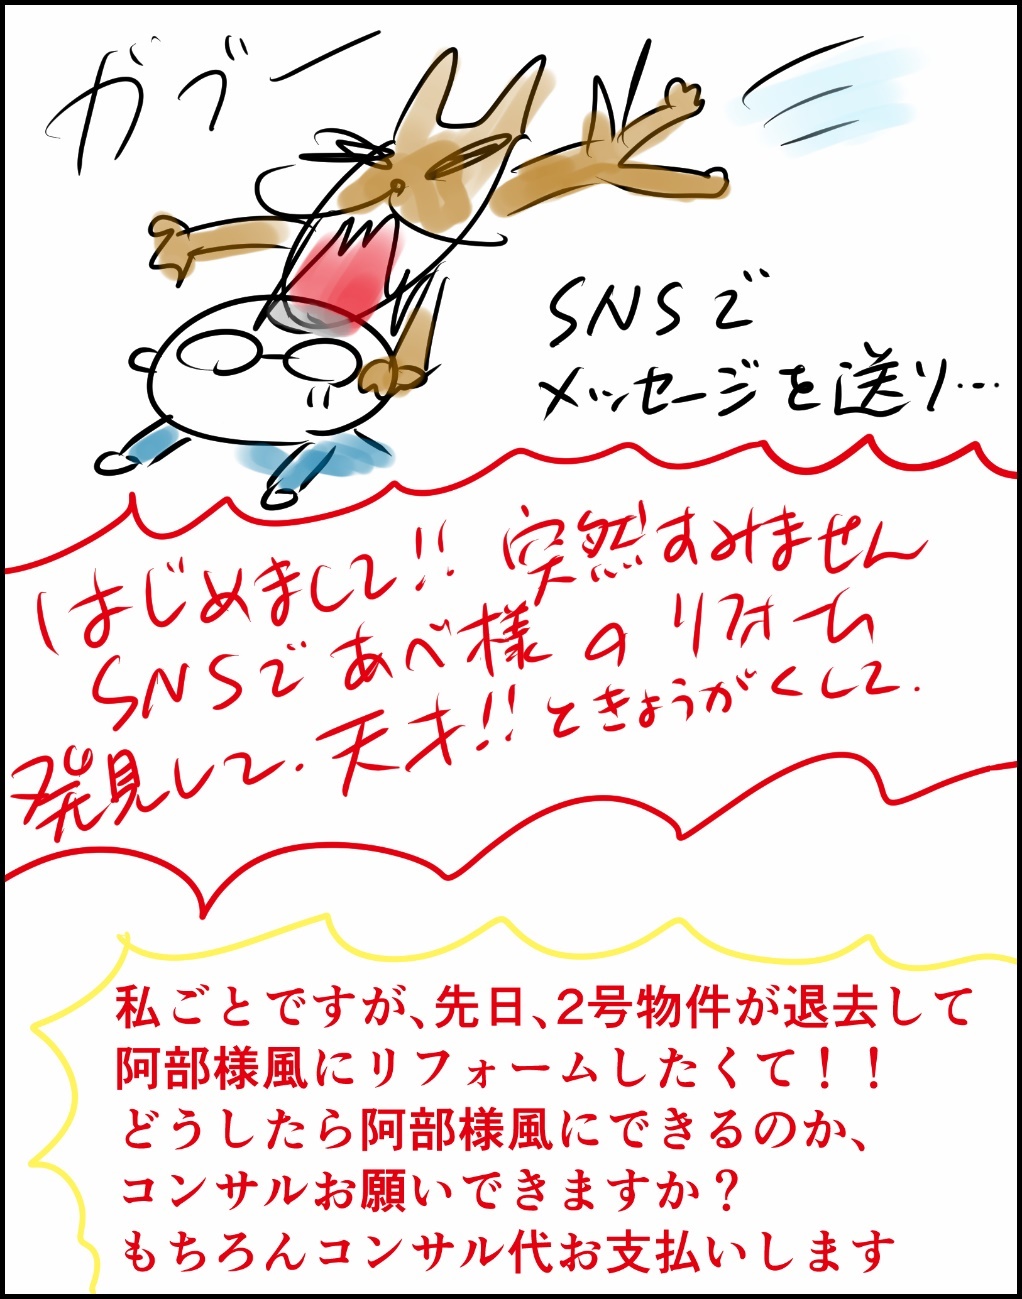 ガブー
SNSで
メッセージを送り…
はじめまして!! 突然すみません
SNSであべ様のリフォーム
発見して.天才!!ときょうがくして.
私ごとですが、先日、2号物件が退去して
阿部様風にリフォームしたくて！！
どうしたら阿部様風にできるのか、
コンサルお願いできますか？
もちろんコンサル代お支払いします